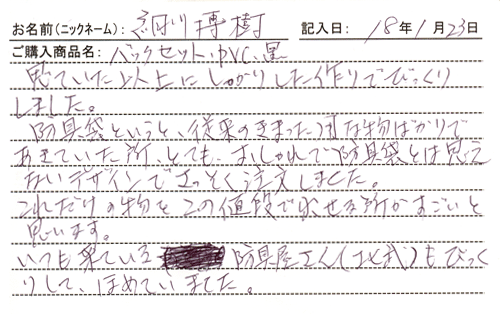 お名前(ニックネーム): 細川 博樹 記入日: 18年1月23日
ご購入商品名: バックセット・PVC、黒
思っていた以上にしっかりした作りでびっくり
しました。
防具袋というと、従来のきまった様な物ばかりで
あきていた所、とても、おしゃれで防具袋とは思え
ないデザインでさっそく注文しました。
これだけの物をこの値段で出せる所がすごいと
思います。
いつも来ている 防具屋さん( )もびっく
りして、ほめていました。